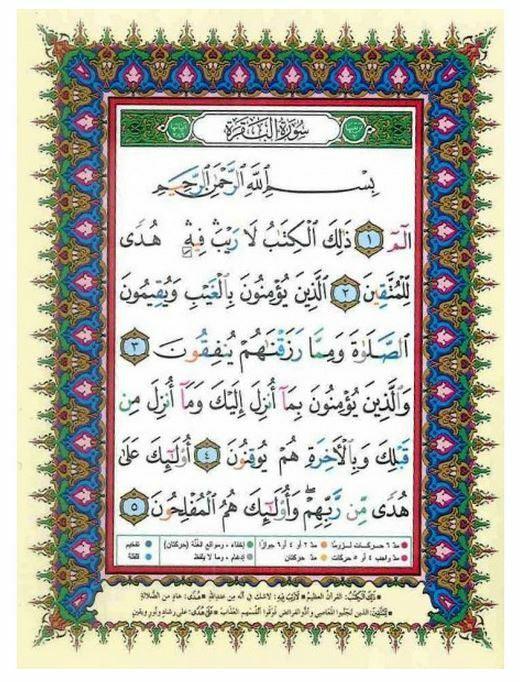 سُورَةُ البَقَرَةِ
بِسْمِ ٱللَّهِ ٱلرَّحْمَٰنِ ٱلرَّحِيمِ
الٓمٓ ١ ذَٰلِكَ ٱلْكِتَٰبُ لَا رَيْبَ ۛ فِيهِ ۛ هُدًى
لِّلْمُتَّقِينَ ٢ ٱلَّذِينَ يُؤْمِنُونَ بِٱلْغَيْبِ وَيُقِيمُونَ
ٱلصَّلَوٰةَ وَمِمَّا رَزَقْنَٰهُمْ يُنفِقُونَ ٣
وَٱلَّذِينَ يُؤْمِنُونَ بِمَآ أُنزِلَ إِلَيْكَ وَمَآ أُنزِلَ مِن
قَبْلِكَ وَبِٱلْأَخِرَةِ هُمْ يُوقِنُونَ ٤ أُو۟لَٰٓئِكَ عَلَىٰ
هُدًى مِّن رَّبِّهِمْ ۖ وَأُو۟لَٰٓئِكَ هُمُ ٱلْمُفْلِحُونَ ٥
مدّ ٦ حركات لزوماً مدّ ٢ أو ٤ أو ٦ جوازاً إخفاء، ومواقع الغُنَّة (حركتان) تفخيم
مدّ واجب ٤ أو ٥ حركات مدّ حركتان إدغام، وما لا يُلفظ قلقلة
ذَلِكَ الكِتَابُ: القرآن العظيم لَا رَيْبَ فِيهِ: لا شك في أنه من عند الله هُدًى: هادٍ من الضلالة